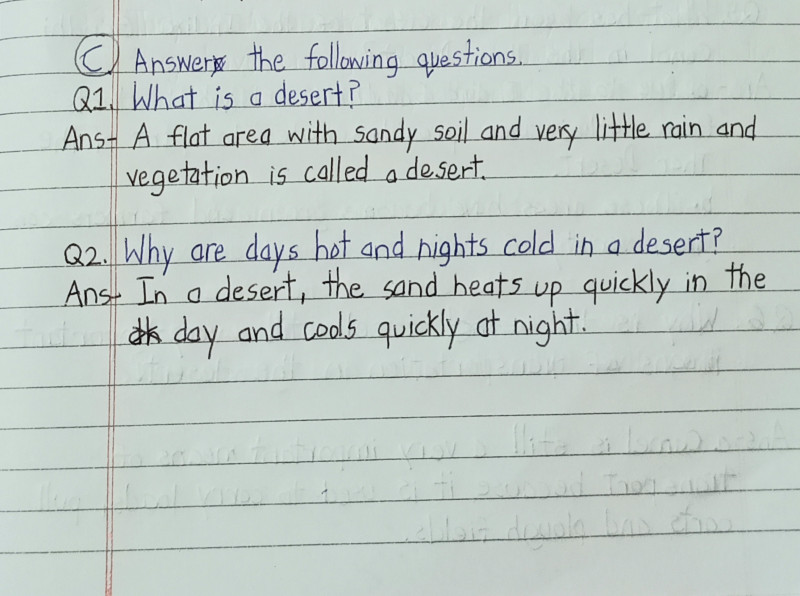 C Answer the following questions.
Q1. What is a desert?
Ans- A flat area with sandy soil and very little rain and
vegetation is called a desert.
Q2. Why are days hot and nights cold in a desert?
Ans- In a desert, the sand heats up quickly in the
day and cools quickly at night.